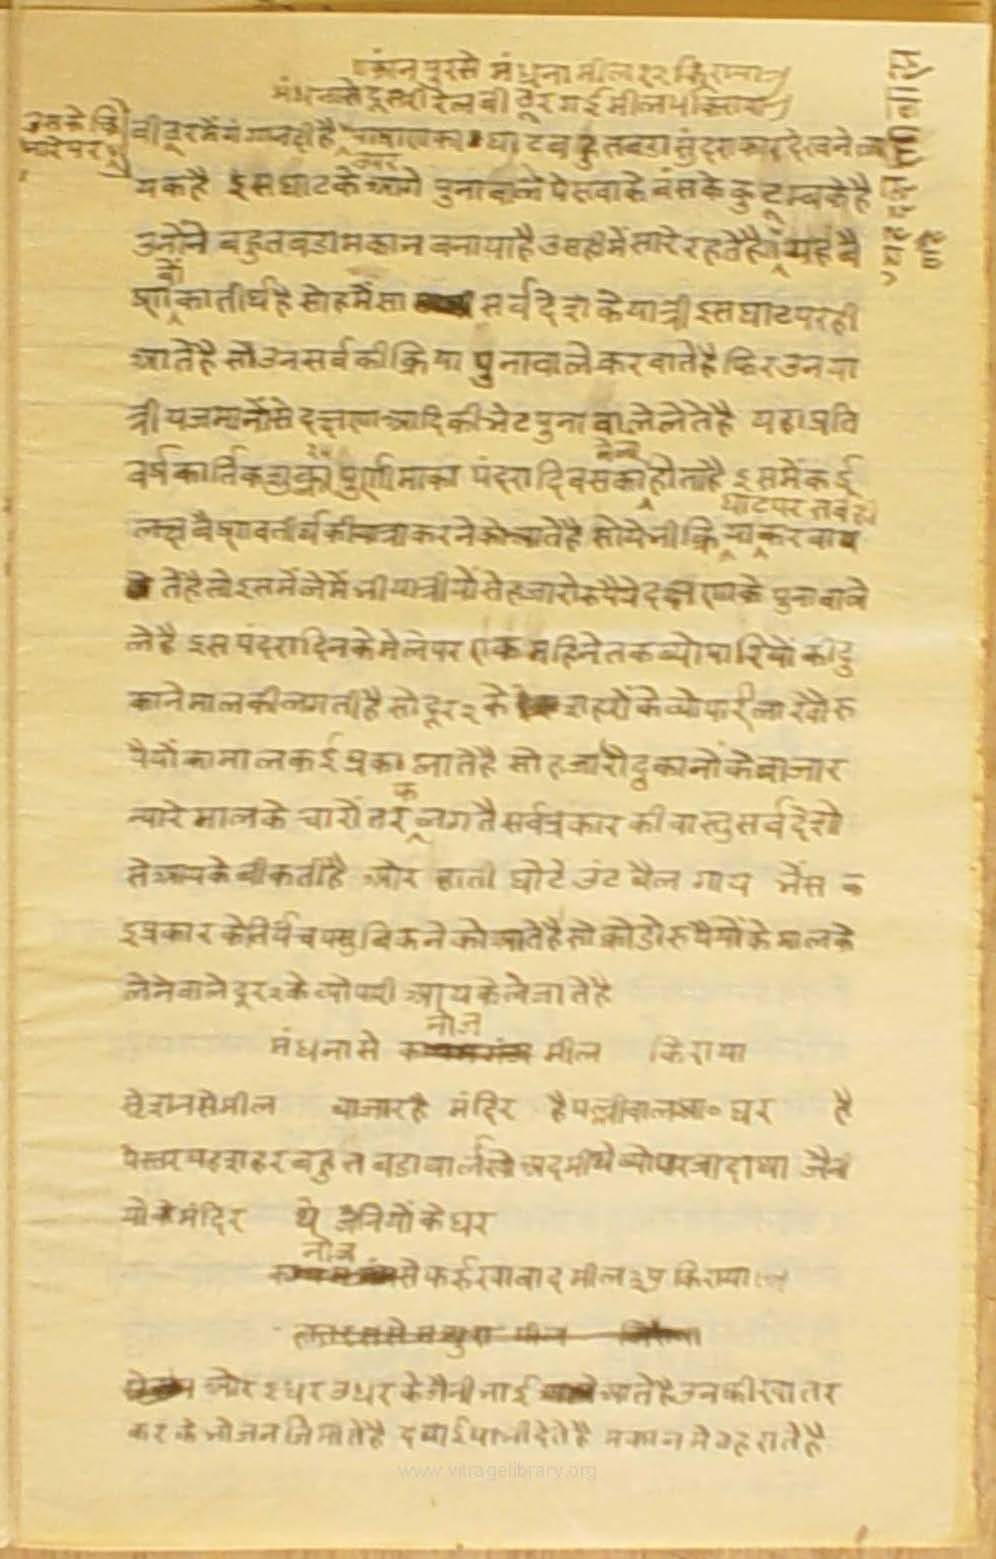 कानपुरसे मंधना मील १२ किराया
मंधनासे दुसरी रेल बीठूर गई मील ५ किराया
उसके कि
नारे पर
बीठूरमें गंगा नदी है घाट बहुत बडा सुंदराकार देखने ला
यक है इस घाटके आगे पुनावाले पेसवाके बंसके कुटूम्बके है
उनोंने बहुत बडा मकान बनाया है उसहीमें सारे रहते है यह वै
ष्णवोंका तीर्थ है सो हमेंसा सर्व देशके यात्री इस घाट पर ही
आते है सो उन सर्वकी क्रिया पुनावाले करवाते है फिर उन या
त्री यजमानोंसे दक्षणा आदिकी भेट पुनावाले लेते है यहा प्रति
वर्ष कार्तिक शुक्ल पुर्णीमाका पंदरा दिवसका मेला होता है इसमें कई
घाटपर तब ही
लक्ष वैष्णव तीर्थकी यात्रा करनेको आते है सो ये भी क्रिया करवाय
ते है तो इस मेलेमें भी यात्रीयोंसे हजारो रुपैये दक्षणाके पुनावाले
ले है इस पंदरा दिनके मेले पर एक महिने तक व्योपारियोंकी दु
काने मालकी लगती है सो दूर २ के शहरोंके व्योपारी लाखों रु
पैयोंका माल कई प्रका लाते है सो हजारों दुकानोंके बाजार
न्यारे मालके चारों तरफ लगते सर्व प्रकारकी वास्तु सर्व देशो
से आयके बीकती है और हाती घोटे उंट बैल गाय भेंस क
इ प्रकारके तिर्यंच पसु बिकनेको आते है सो क्रोडो रुपैयोंके मालके
लेनेवाले दुर २ के व्योपरी आयके ले जाते है
मंधनासे नोज मील किराया
सेशनसे मील बाजार है मंदिर है पल्लीवाल आ॰ घर है
पेस्तर यह शहर बहुत बडा था व्योपार जादा था जैनी
योंके मंदिर थे जैनियोंके घर
नोजसे फर्रुखाबाद मील ३५ किराया
और इधर उधरके जैनी भाई आते है उनकी खातर
करके भोजन जिमाते है दवाई पानी देते है मकानमे ठहराते है
www.vitragelibrary.org